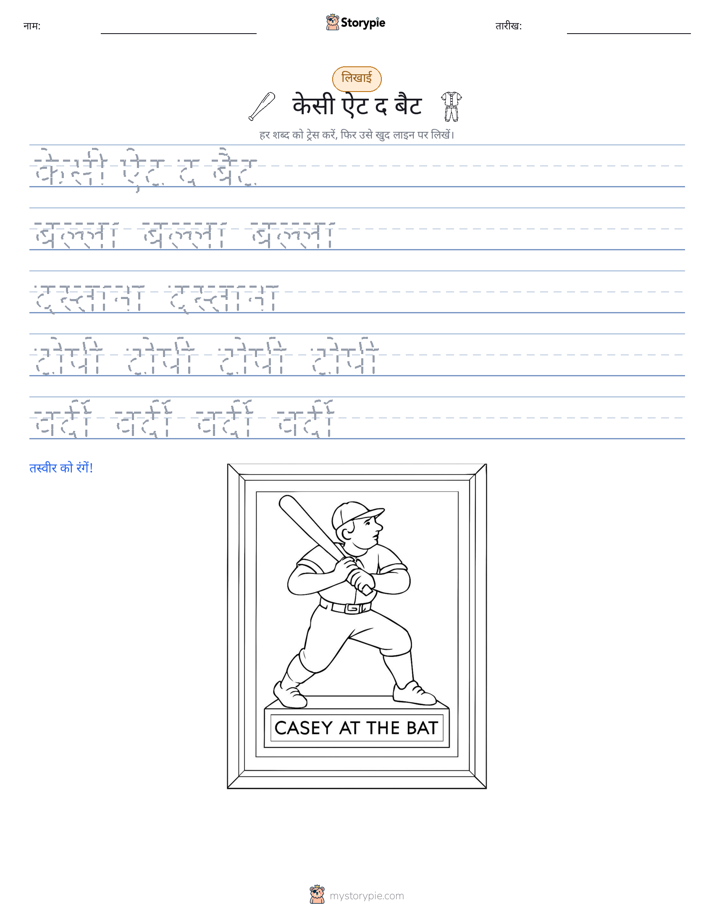 नाम:
Storypie
तारीख:
लिखाई
केसी ऐट द बैट
हर शब्द को ट्रेस करें, फिर उसे खुद लाइन पर लिखें।
केसी ऐट द बैट
बल्ला बल्ला बल्ला
दस्ताना दस्ताना
टोपी टोपी टोपी टोपी
वर्दी वर्दी वर्दी वर्दी
तस्वीर को रंगें!
CASEY AT THE BAT
mystorypie.com